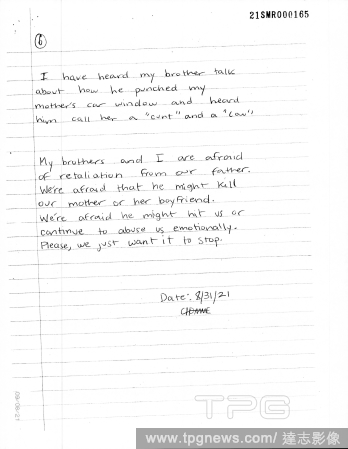 21SMR000165
6
I have heard my brother talk
about how he punched my
mother's car window and heard
him call her a "cunt" and a "cow"
My brothers and I are afraid
of retaliation from our father.
We're afraid that he might kill
our mother or her boyfriend.
We're afraid he might hit us or
continue to abuse us emotionally.
Please, we just want it to stop.
Date: 8/31/21
TPG
www.tpgnews.com/達志影像